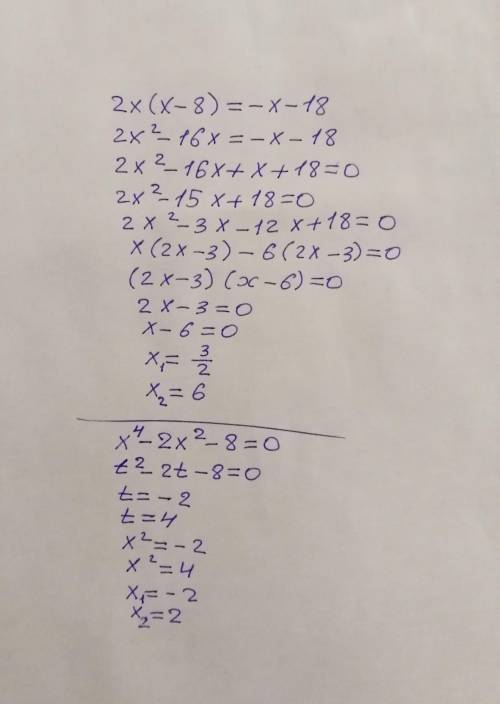 2x(x-8)=-x-18
2x²-16x=-x-18
2x²-16x+x+18=0
2x²-15x+18=0
2x²-3x-12x+18=0
x(2x-3)-6(2x-3)=0
(2x-3)(x-6)=0
2x-3=0
x-6=0
x₁=3/2
x₂=6
x⁴-2x²-8=0
t²-2t-8=0
t=-2
t=4
x²=-2
x²=4
x₁=-2
x₂=2